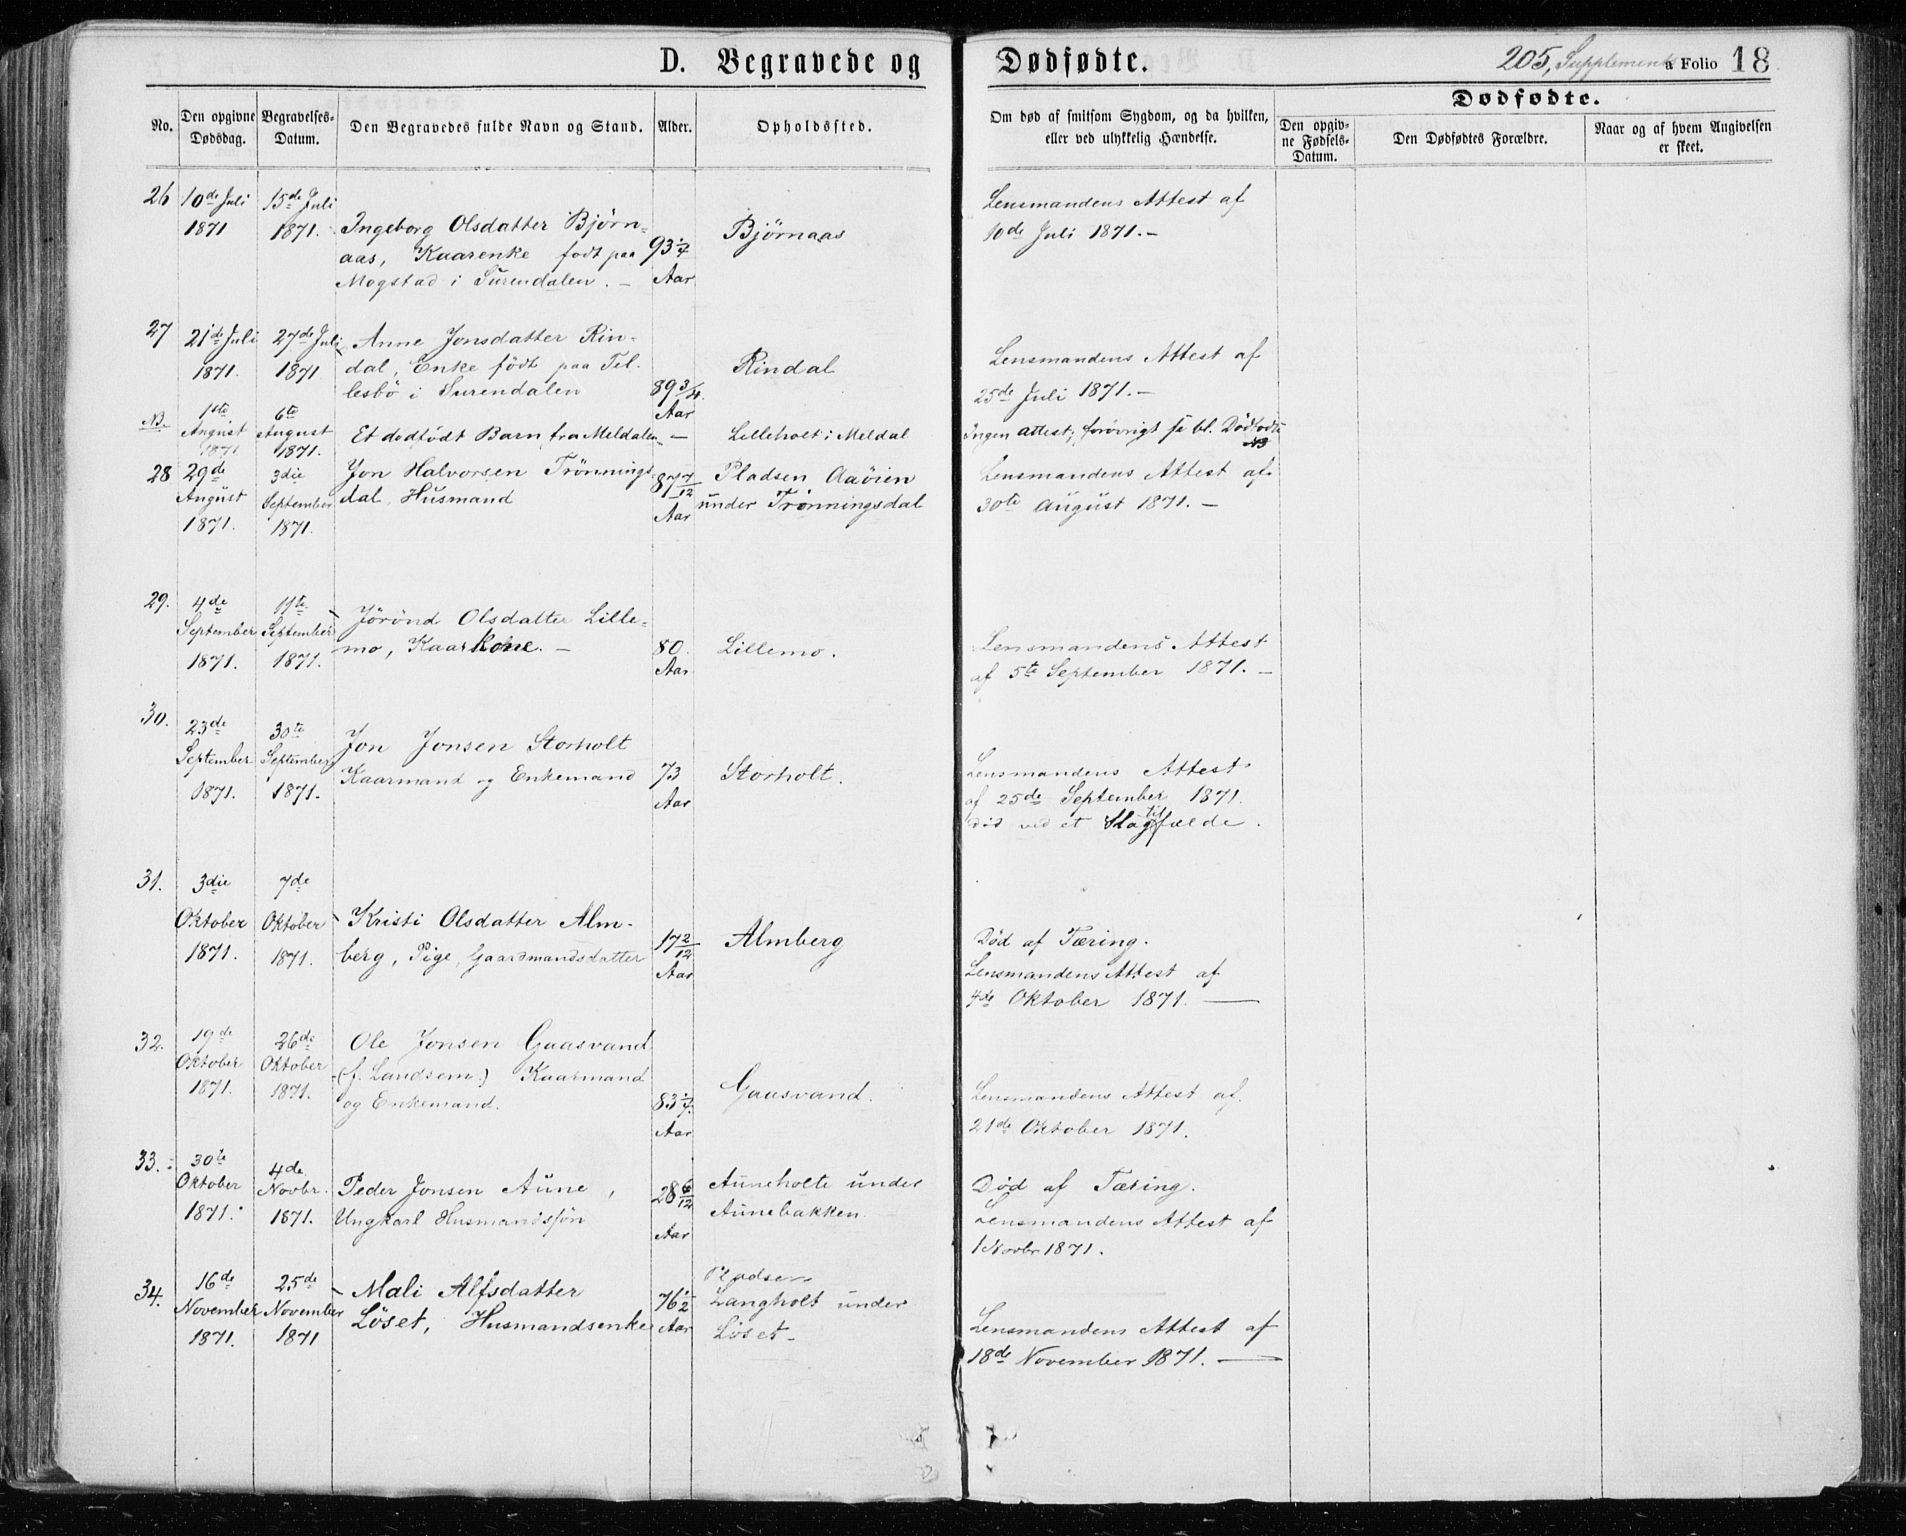 D. Begravede og Dødfødte.
205, Supplements a Folio 18
No.
Den opgivne Dødsdag.
Begravelses-Datum.
Den Begravedes fulde Navn og Stand.
Alder.
Opholdssted.
Om død af smitsom Sygdom, og da hvilken,
eller ved ulykkelig Hændelse.
Dødfødte.
Den opgiv-
ne Fødsels-
Datum.
Den Dødfødtes Forældre.
Naar og af hvem Angivelsen
er skeet.
26 10de Juli 15de Juli
1871 1871.
Ingeborg Olsdatter Bjørn-
aas, Kaarenke født paa
Mogstad i Surendalen. –
93 1/4
Aar
Bjørnaas
Lensmandens Attest af
10de Juli 1871. –
27 21de Juli 27de Juli
1871. 1871
Anne Jonsdatter Rin-
dal, Enke født paa Tel-
lesbö i Surendalen
89 3/4.
Aar
Rindal
Lensmandens Attest af
25de Juli 1871. –
NB. 1ste 6te
August August
1871 1871.
Et dödfödt Barn fra Meldalen
–
Lilleholt i Meldal
Ingen attest; forøvrigt se bl. Dødfødte
NB
28 29de 3die
August September
1871. 1871.
Jon Halvorsen Trönnings-
dal, Husmand
87 7/12
Aar
Pladsen Aaöien
under Trönningsdal
Lensmandens Attest af
30te August 1871. –
29. 4de 11te
September September
1871. 1871.
Jörönd Olsdatter Lille-
mo, Kaarkone. –
80.
Aar
Lillemo.
Lensmandens Attest
af 5te September 1871. –
30. 23de 30te
September September
1871. 1871.
Jon Jonsen Storholt
Kaarmand og Enkemand
73
Aar
Storholt.
Lensmandens Attest
af 25de September 1871.
Död ved et Slagtilfælde.
31. 3die 7de
Oktober Oktober
1871. 1871.
Kristi Olsdatter Alm-
berg, Pige, Gaardmandsdatter
17 2/12
Aar
Almberg
Död af Tæring.
Lensmandens Attest af
4de Oktober 1871. –
32. 19de 26de
Oktober Oktober
1871. 1871.
Ole Jonsen Gaasvand
(f. Landsem.) Kaarmand
og Enkemand.
83 1/4.
Aar
Gaasvand.
Lensmandens Attest af
21de Oktober 1871.
33. 30te 4de
Oktober Novbr.
1871. 1871.
Peder Jonsen Aune,
Ungkarl Husmandssön
28 6/12
Aar
Auneholte under
Aunebakken.
Död af Tæring.
Lensmandens Attest af
1 Novbr 1871.
34. 16de 25de
November November
1871. 1871
Mali Alfsdatter
Löset, Husmandsenke
76 1/2
Aar
Pladsen
Langholt under
Löset –
Lensmandens Attest af
18de November 1871. –